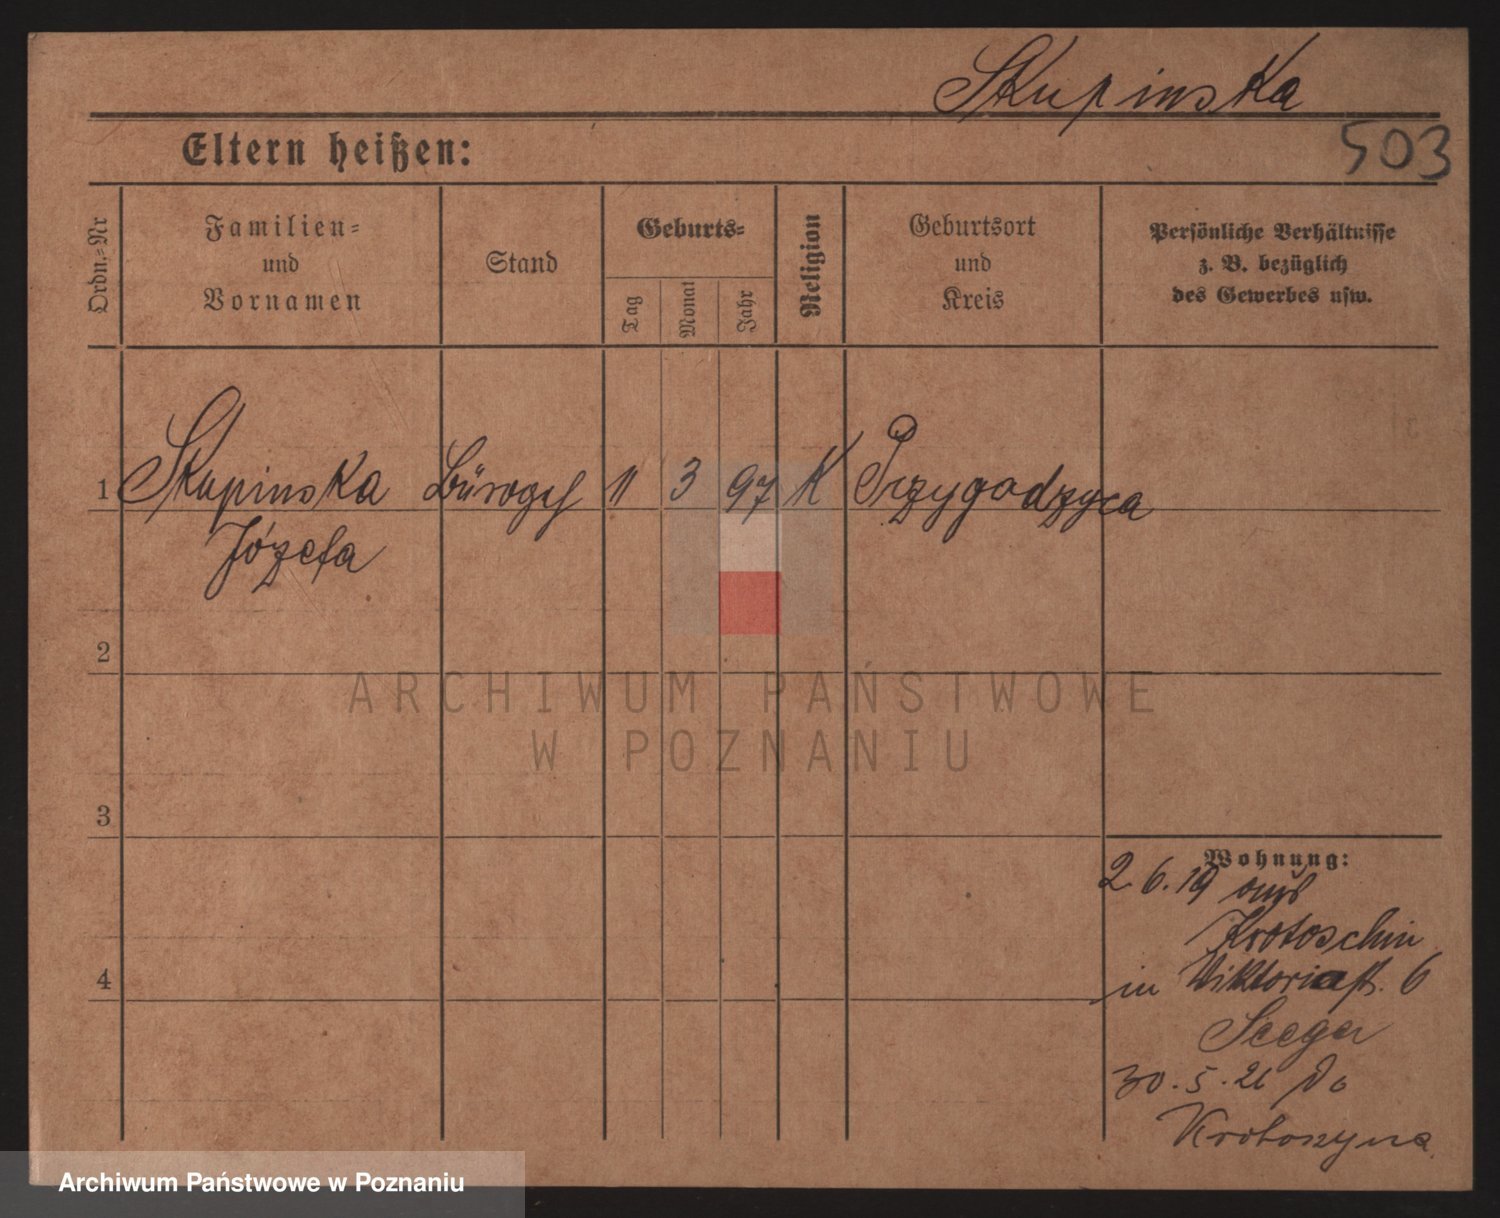 Skupinska
503
Eltern heißen:
Ordn.=Nr
Familien=
und
Vornamen
Stand
Geburts=
Tag
Monat
Jahr
Religion
Geburtsort
und
Kreis
Persönliche Verhältnisse
z. B. bezüglich
des Gewerbes usw.
1 Skupinska Bürogeh 11 3 97 K Przygodzyca
Józefa
2
3
4
Wohnung:
2.6.19 aus
Krotoschin
in Viktoriast. 6
Seeger
30.5.21 Do
Krotoszyna
ARCHIWUM PAŃSTWOWE
W POZNANIU
Archiwum Państwowe w Poznaniu